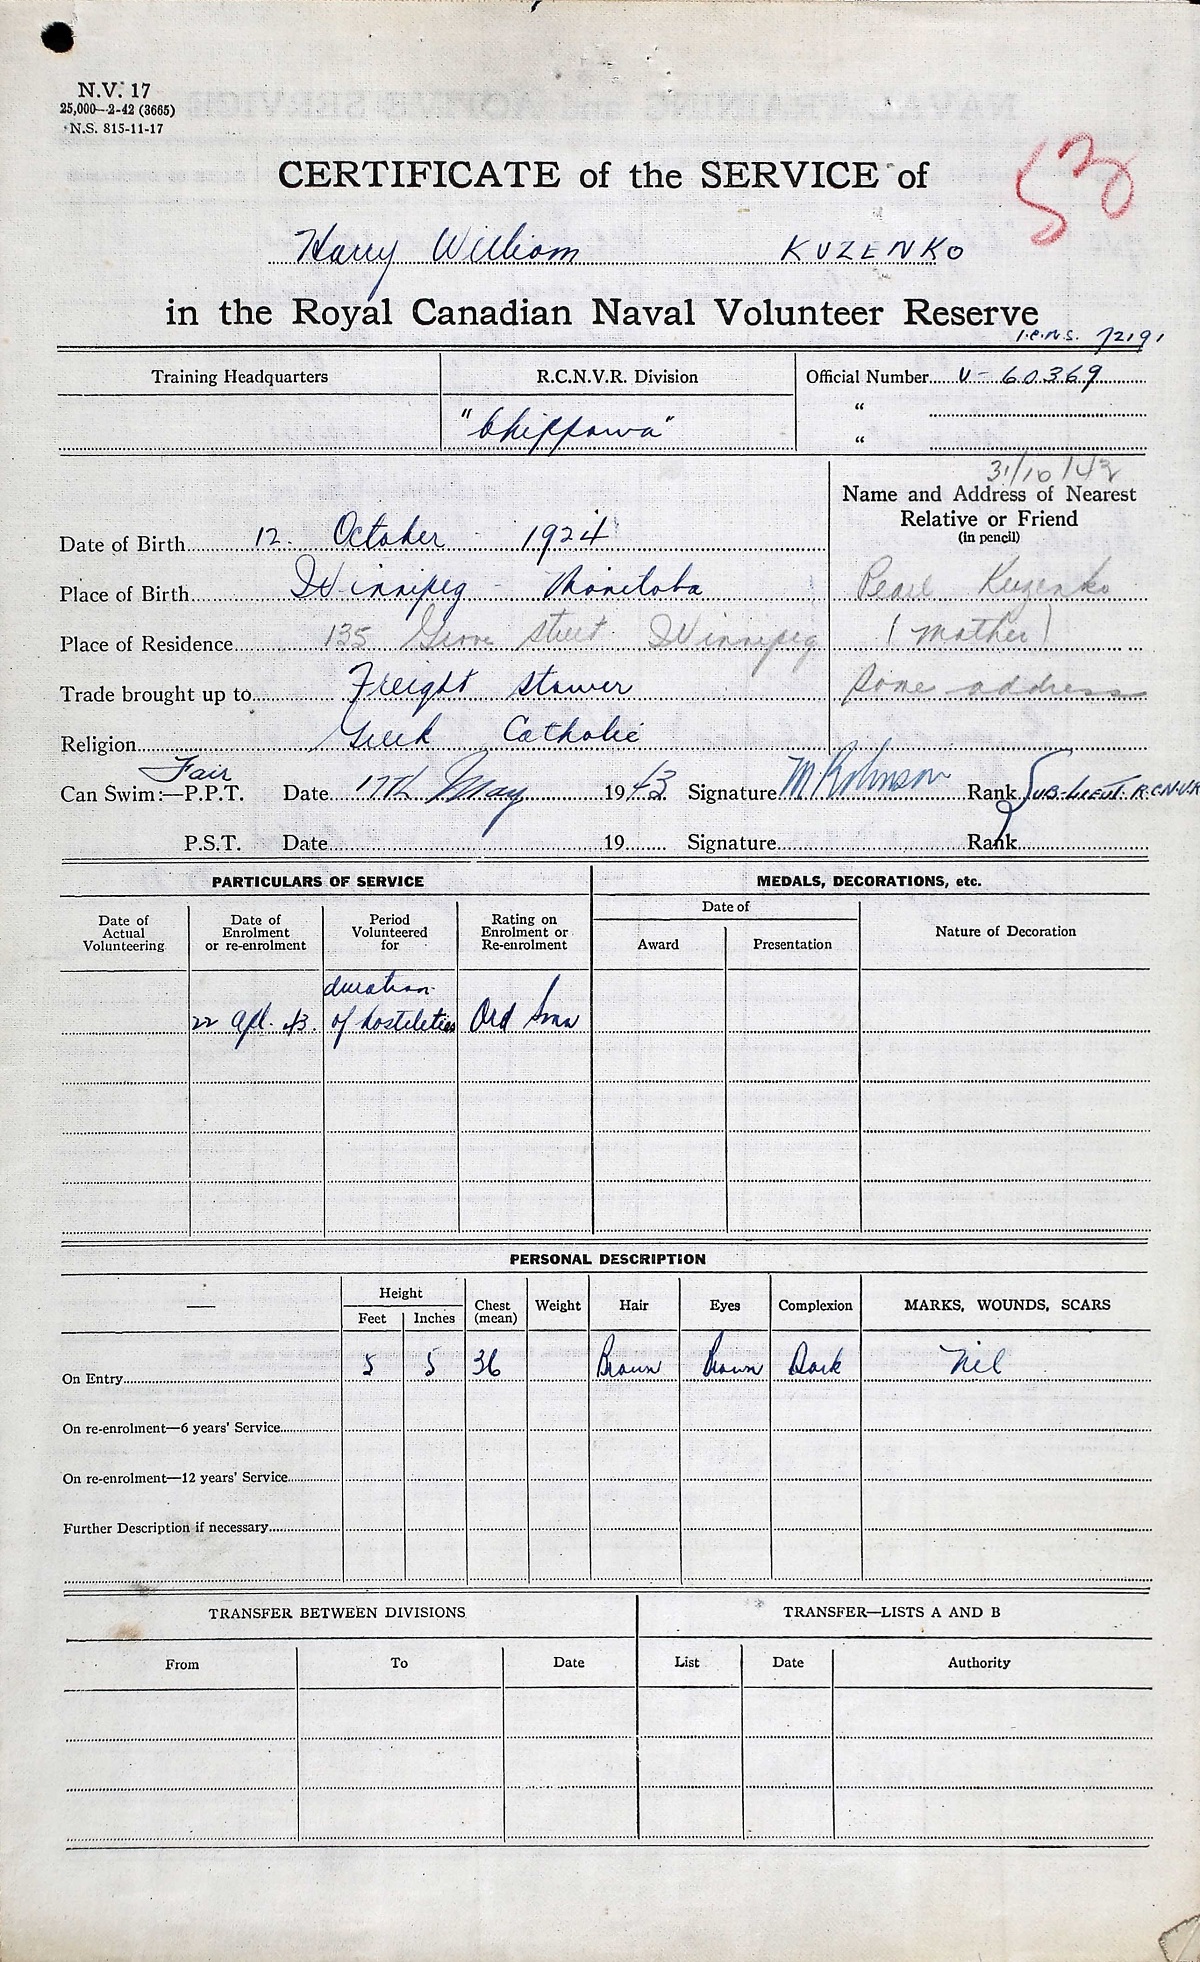 N.V. 17
25,000—2-42 (3665)
N.S. 815-11-17
CERTIFICATE of the SERVICE of
53
Harry William KUZENKO
in the Royal Canadian Naval Volunteer Reserve
72191
Training Headquarters R.C.N.V.R. Division Official Number V-60369
"Chippawa" "
"
31/10/42
Name and Address of Nearest
Relative or Friend
(in pencil)
Date of Birth 12. October 1924
Place of Birth Winnipeg - Manitoba Pearl Kuzenko
Place of Residence 135 Grove Street Winnipeg (mother)
Trade brought up to Freight Stower Same address
Religion Greek Catholic
Fair
Can Swim:—P.P.T. Date 17th May 1943 Signature M Robinson Rank SUB-LIEUT. R.C.N.V.R
P.S.T. Date 19 Signature Rank
PARTICULARS OF SERVICE MEDALS, DECORATIONS, etc.
Date of Actual Volunteering Date of Enrolment or re-enrolment Period Volunteered for Rating on Enrolment or Re-enrolment Date of Nature of Decoration
Award Presentation
duration
22 Apl. 43. of hostelities Ord Smn
PERSONAL DESCRIPTION
— Height Chest (mean) Weight Hair Eyes Complexion MARKS, WOUNDS, SCARS
Feet Inches
On Entry 5 5 36 Brown Brown Dark Nil
On re-enrolment—6 years' Service
On re-enrolment—12 years' Service
Further Description if necessary
TRANSFER BETWEEN DIVISIONS TRANSFER—LISTS A AND B
From To Date List Date Authority